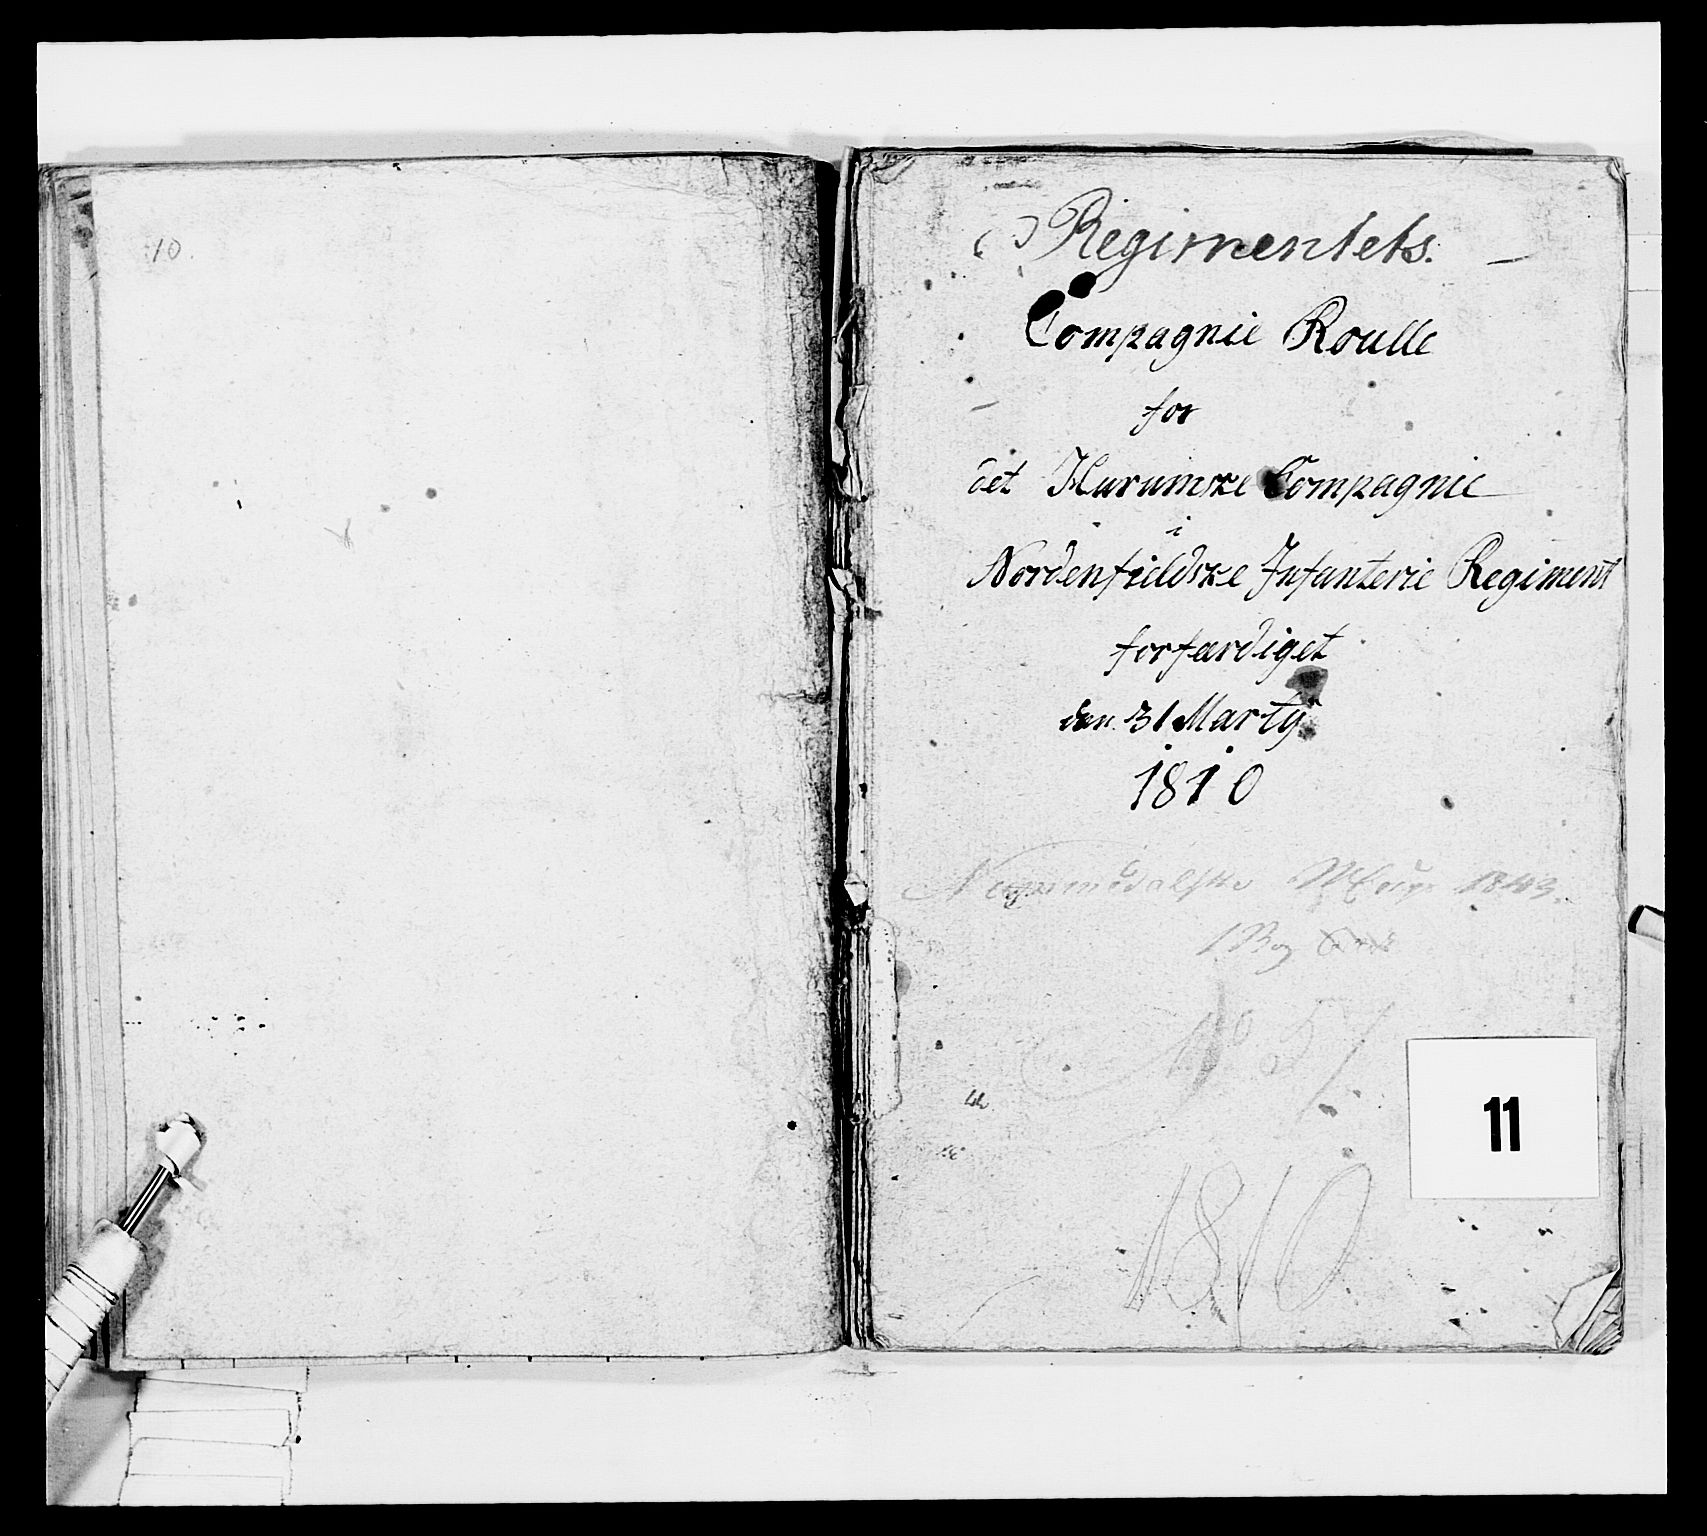 10.
Regimentets.
Compagnie Roulle
for
det Hurumske Compagnie
i
Nordenfieldske Infanterie Regiment
forfærdiget
den 31 Marty
1810
1843.
No 57
11
1810